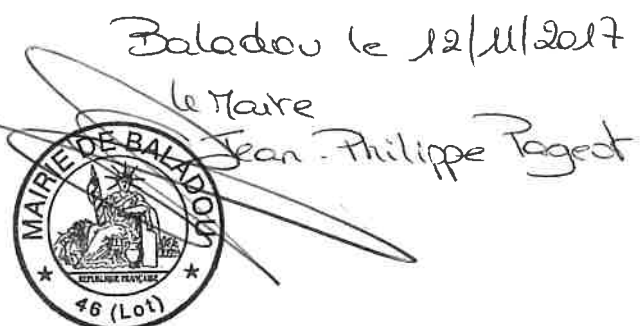 Baladou le 12/11/2017
le Maire
Jean-Philippe Pageot
MAIRIE DE BALADOU
REPUBLIQUE FRANÇAISE
★ 46 (Lot) ★